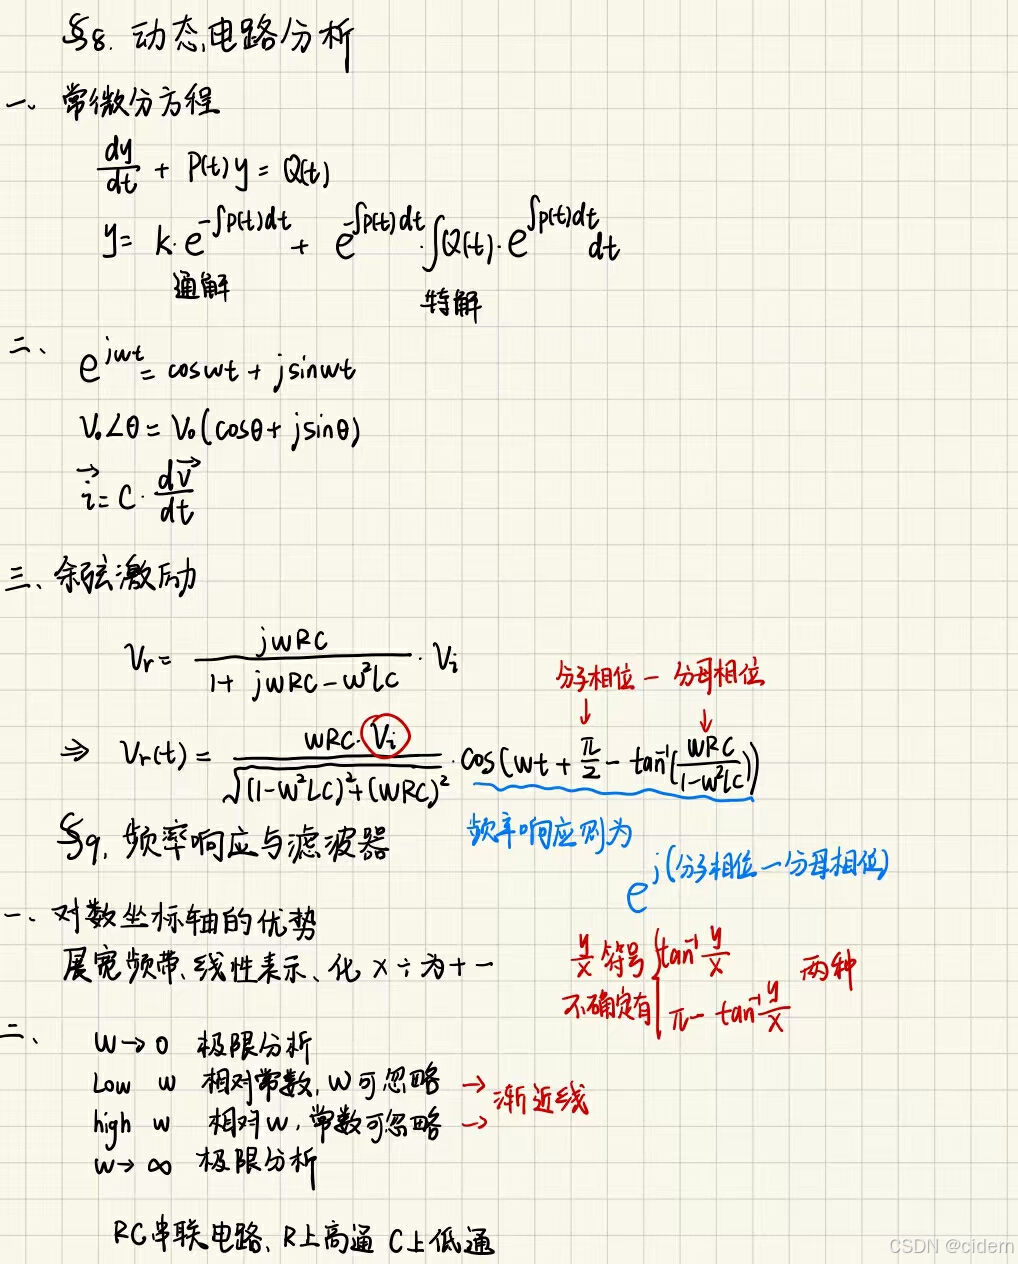 §8. 动态电路分析
一、常微分方程
dy/dt + P(t)y = Q(t)
y = k·e^{-∫P(t)dt} + e^{-∫P(t)dt}·∫Q(t)·e^{∫P(t)dt}dt
通解 特解
二、
e^{jwt} = coswt + jsinwt
V₀∠θ = V₀(cosθ + jsinθ)
i⃗ = C·dv⃗/dt
三、余弦激励
Vr = jwRC/(1 + jwRC - w²LC) · Vi
分子相位 - 分母相位
↓ ↓
⇒ Vr(t) = wRC·Vi/√((1-w²LC)²+(wRC)²) · cos(wt + π/2 - tan⁻¹(wRC/(1-w²LC)))
频率响应则为
e^{j(分子相位-分母相位)}
§9. 频率响应与滤波器
一、对数坐标轴的优势
展宽频带、线性表示、化×÷为+-
y/x 符号 { tan⁻¹ y/x
不确定有 π- tan⁻¹ y/x 两种
二、
w→0 极限分析
Low w 相对常数,w可忽略 →
high w 相对w,常数可忽略 →
渐近线
w→∞ 极限分析
RC串联电路、R上高通 C上低通
CSDN @cidern